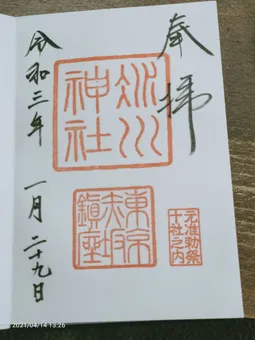 奉拝
氷川神社
元准勅祭
十社之内
東京赤坂鎮座
令和三年
一月二十九日
2021/04/14 13:26